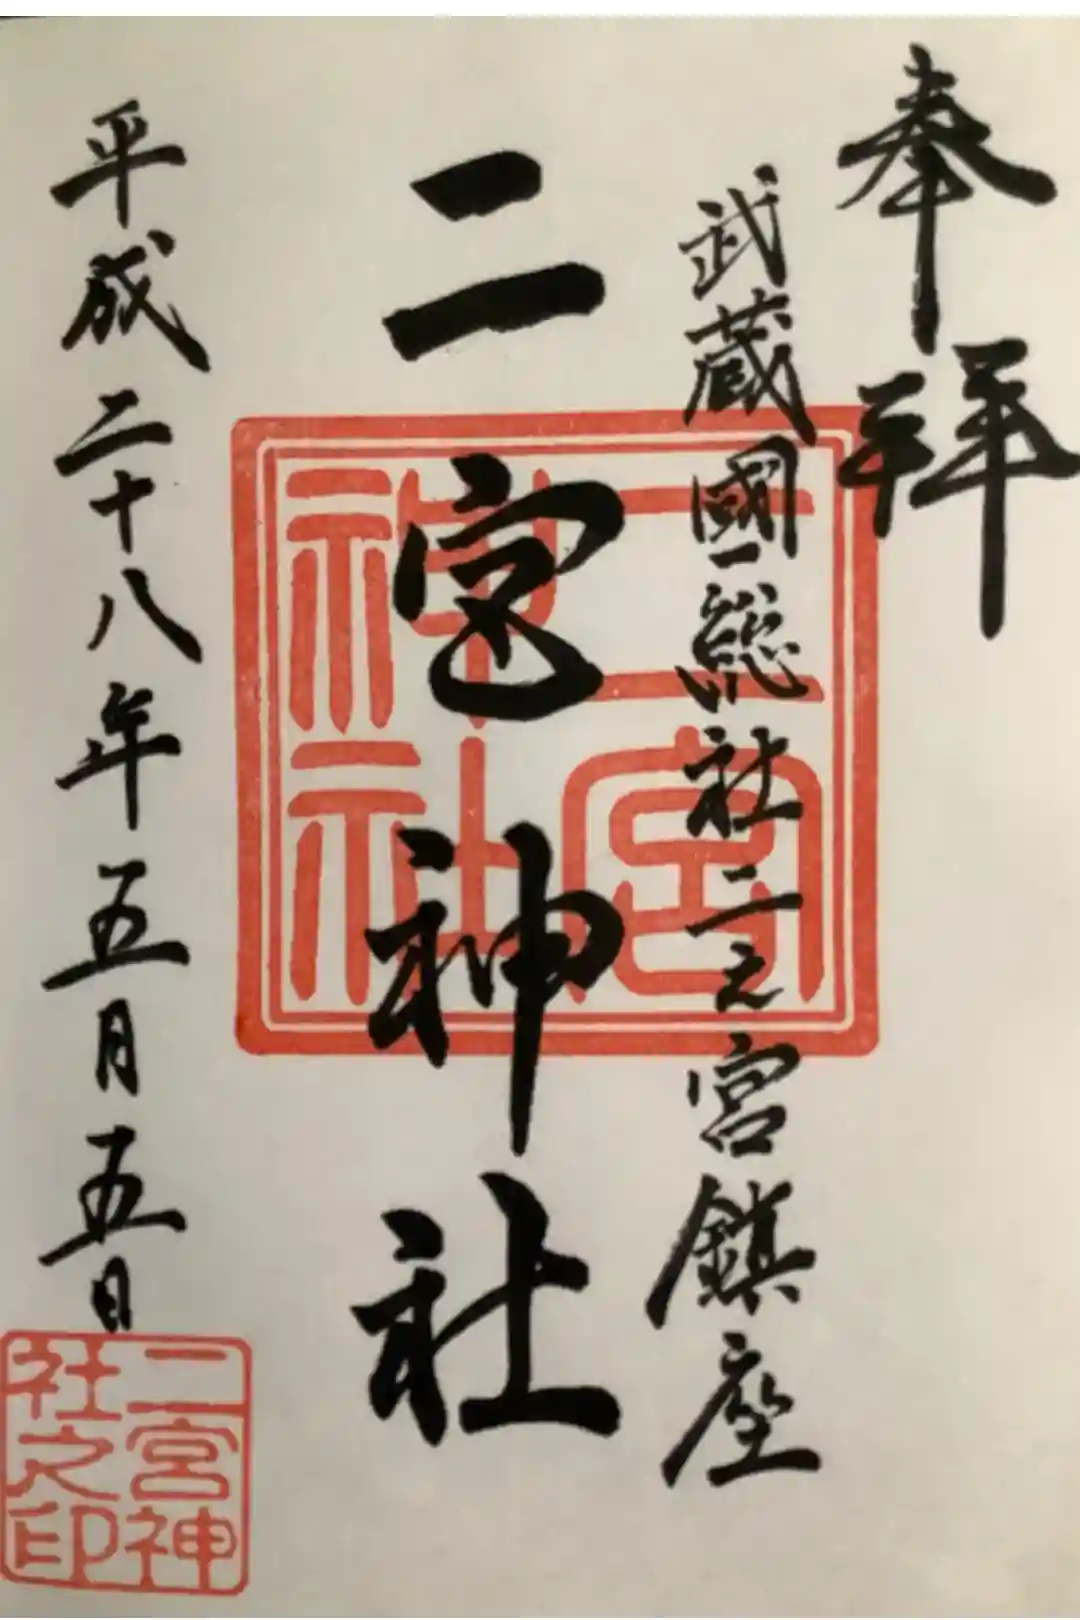 奉拝
武蔵國総社二之宮鎮座
二宮神社
平成二十八年五月五日
二宮
神社
二宮神
社之印